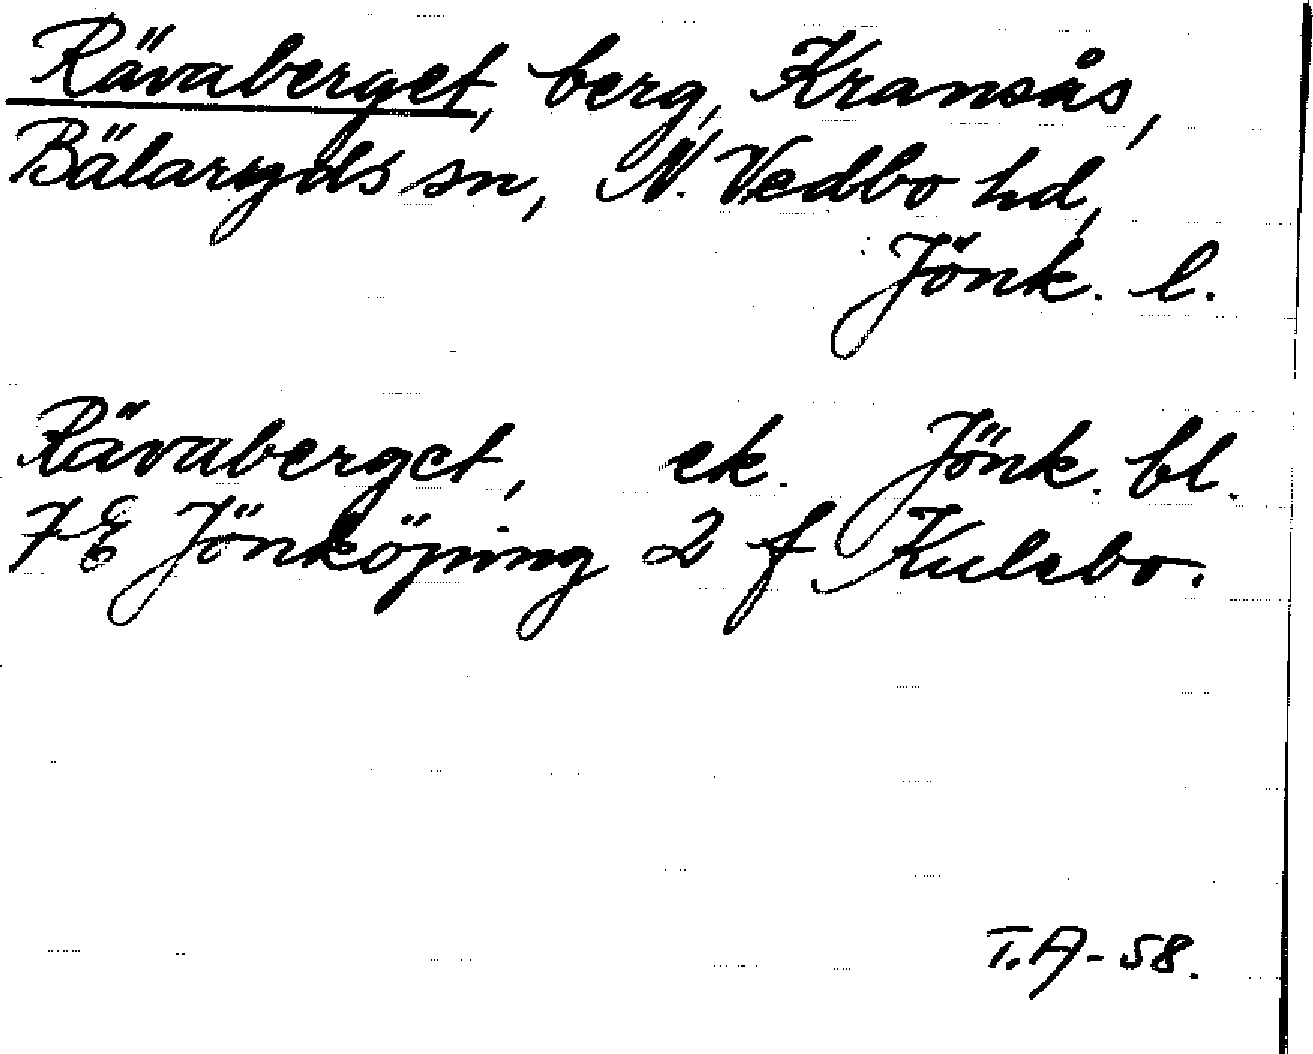 Rävaberget, berg, Kransås,
Bälaryds sn, N. Vedbo hd,
Jönk. l.
Rävaberget, ek. Jönk. bl.
7E Jönköping 2 f Kulebo.
T.A-58.